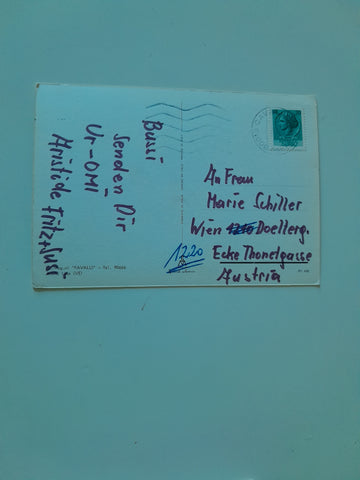 Bussi
senden Dir
Ur-OMI
Aristide Fritz+Susi
An Frau
Marie Schiller
Wien 1210 Doellerg.
1220
Ecke Thonetgasse
Austria
"KAVALLO"